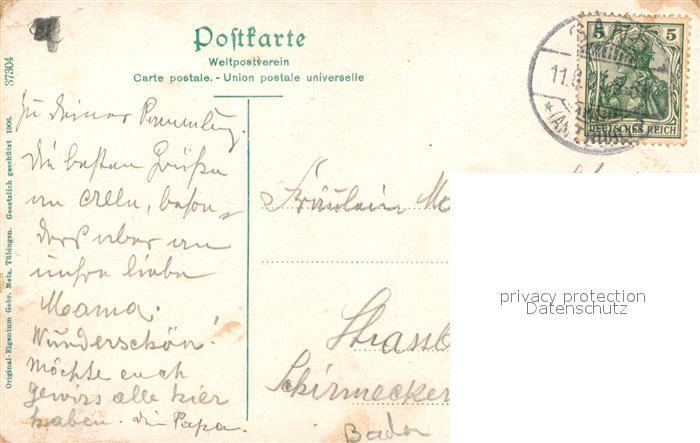 Postkarte
Weltpostverein
Carte postale. - Union postale universelle
37304
Original-Eigentum Gebr. Metz, Tübingen. Gesetzlich geschützt 1906.
5 5
DEUTSCHES REICH
11.8.
Zu deiner Sammlung.
Die besten Grüße
an alle, beson-
ders aber an
unsre liebe
Mama.
Wunderschön!
Möchte euch
gewiss alle hier
haben. Dein Papa.
Fräulein
Strassb
Schirmecker
Baden
privacy protection
Datenschutz